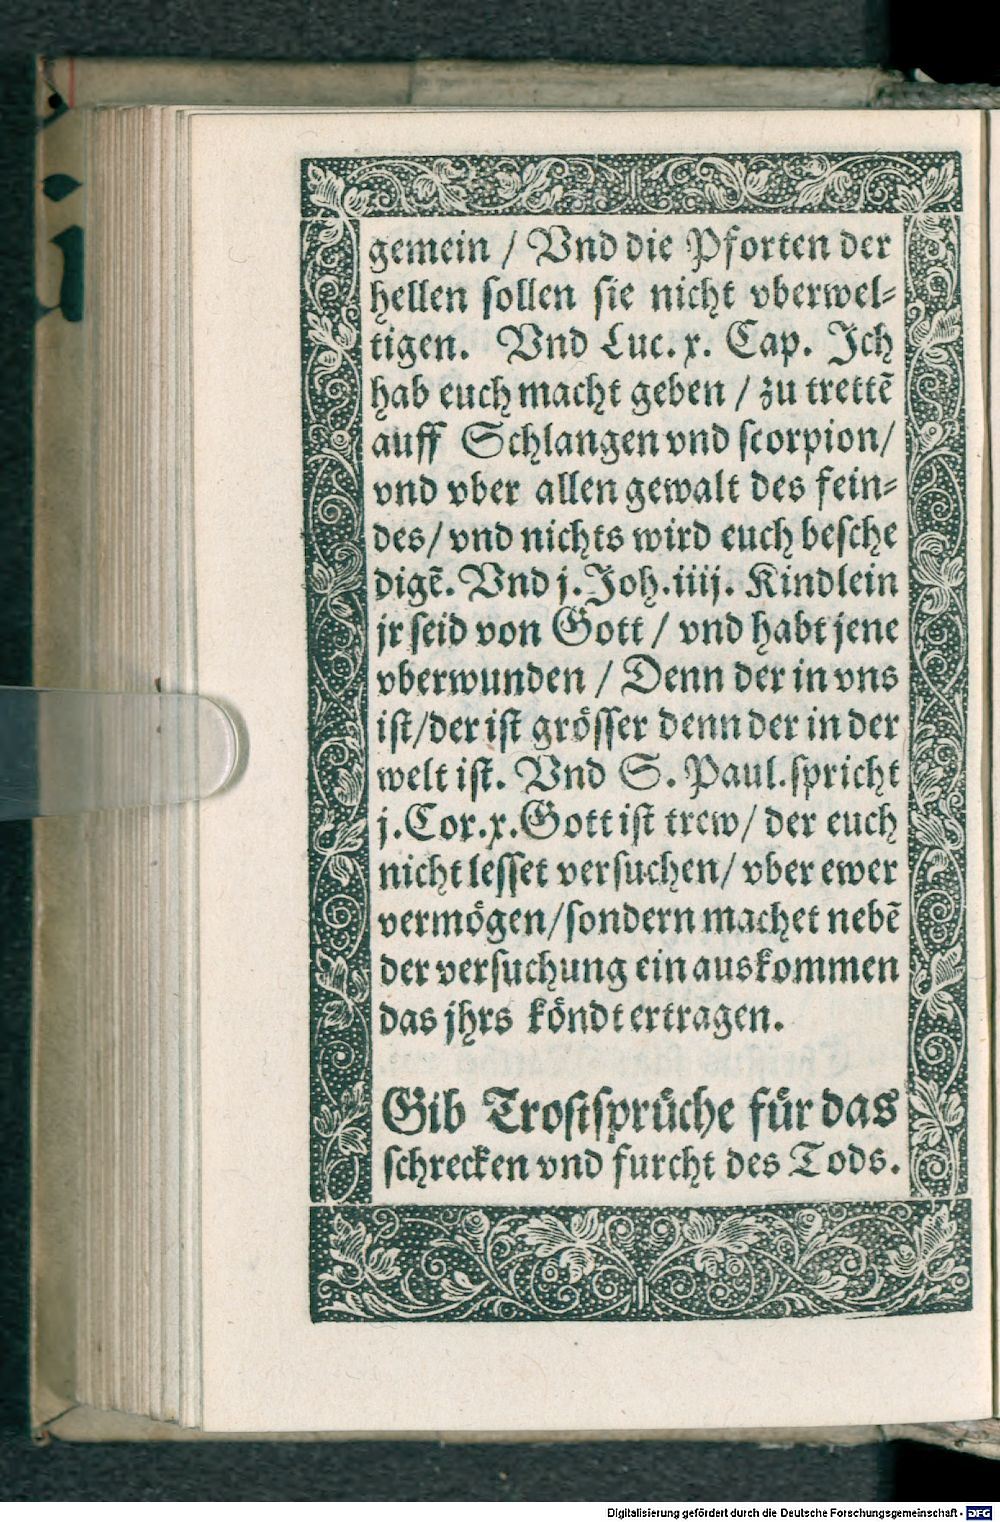 gemein / Vnd die Pforten der
hellen sollen sie nicht vberwel⸗
tigen. Vnd Luc. x. Cap. Ich
hab euch macht geben / zu trettē
auff Schlangen vnd scorpion/
vnd vber allen gewalt des fein⸗
des/ vnd nichts wird euch besche
digē. Vnd j. Joh. iiij. Kindlein
jr seid von Gott / vnd habt jene
vberwunden / Denn der in vns
ist/der ist grösser denn der in der
welt ist. Vnd S. Paul. spricht
j. Cor. x. Gott ist trew/ der euch
nicht lesset versuchen/ vber ewer
vermögen/sondern machet nebē
der versuchung ein auskommen
das jhrs köndt ertragen.
Gib Trostsprüche für das
schrecken vnd furcht des Tods.
Digitalisierung gefördert durch die Deutsche Forschungsgemeinschaft - DFG